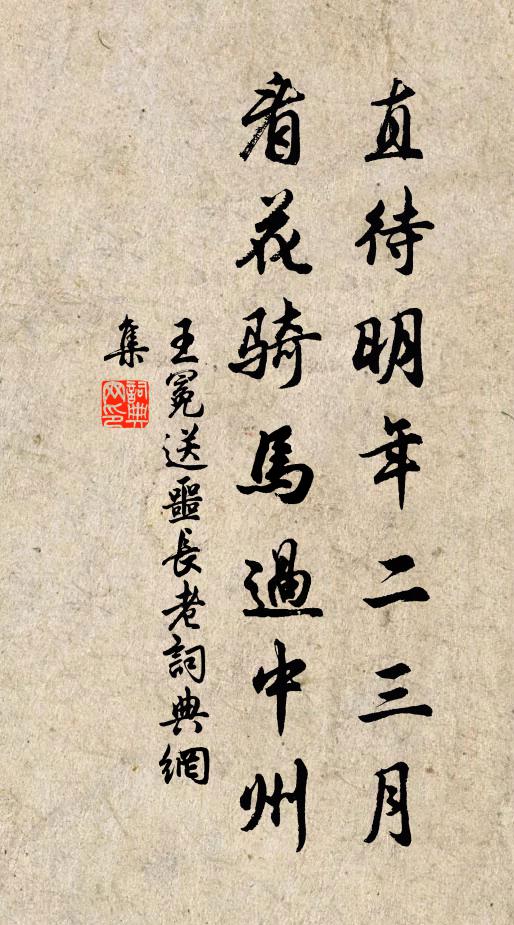 直待明年二三月
看花騎馬過中州
王冕送噩長老詞典網
集
詞典
网印